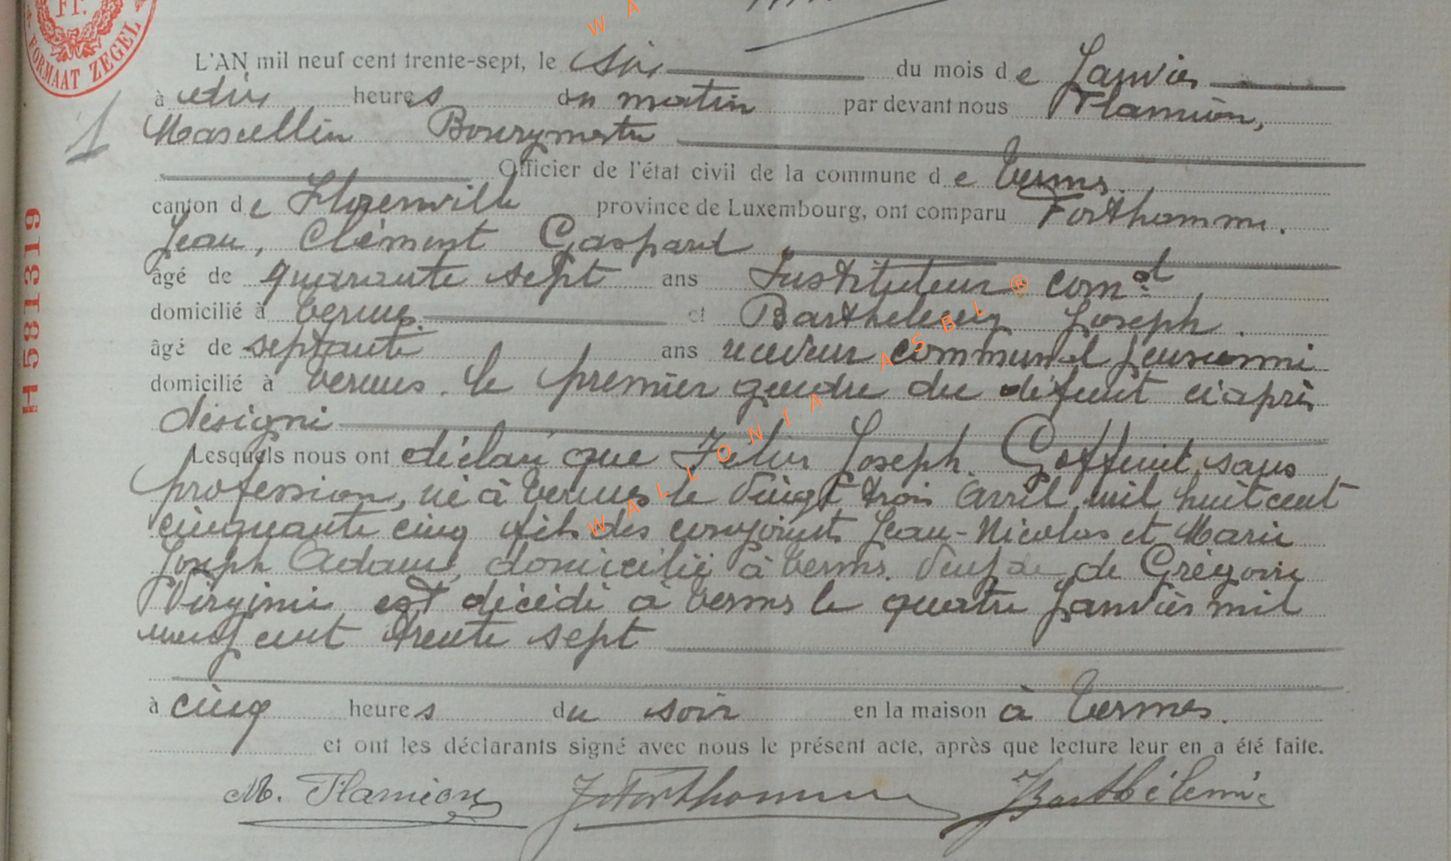 FT.
FORMAAT ZEGEL
1
H 581319
L'AN mil neuf cent trente-sept, le six du mois de Janvier
à dix heures du matin par devant nous Flamion,
Marcellin Bourgmestre
Officier de l'état civil de la commune de Termes.
canton de Florenville province de Luxembourg, ont comparu Forthomme.
Jean, Clément Gaspard
âgé de quarante sept ans Instituteur comal
domicilié à Termes. et Barthelemy Joseph.
âgé de septante ans receveur communal pensionné
domicilié à Termes. le premier gendre du défunt ci après
désigné
Lesquels nous ont déclaré que Félix Joseph Goffinet, sans
profession, né à Termes le vingt trois avril mil huit cent
cinquante cinq fils des conjoints Jean-Nicolas et Marie
Joseph Adam, domicilié à Termes. Veuf de de Grégoire
Virginie est décédé à Termes le quatre Janvier mil
neuf cent trente sept
à cinq heures du soir en la maison à Termes.
et ont les déclarants signé avec nous le présent acte, après que lecture leur en a été faite.
M. Flamion JForthomme JBarthélemi
WALLONIA ASBL ®
WA